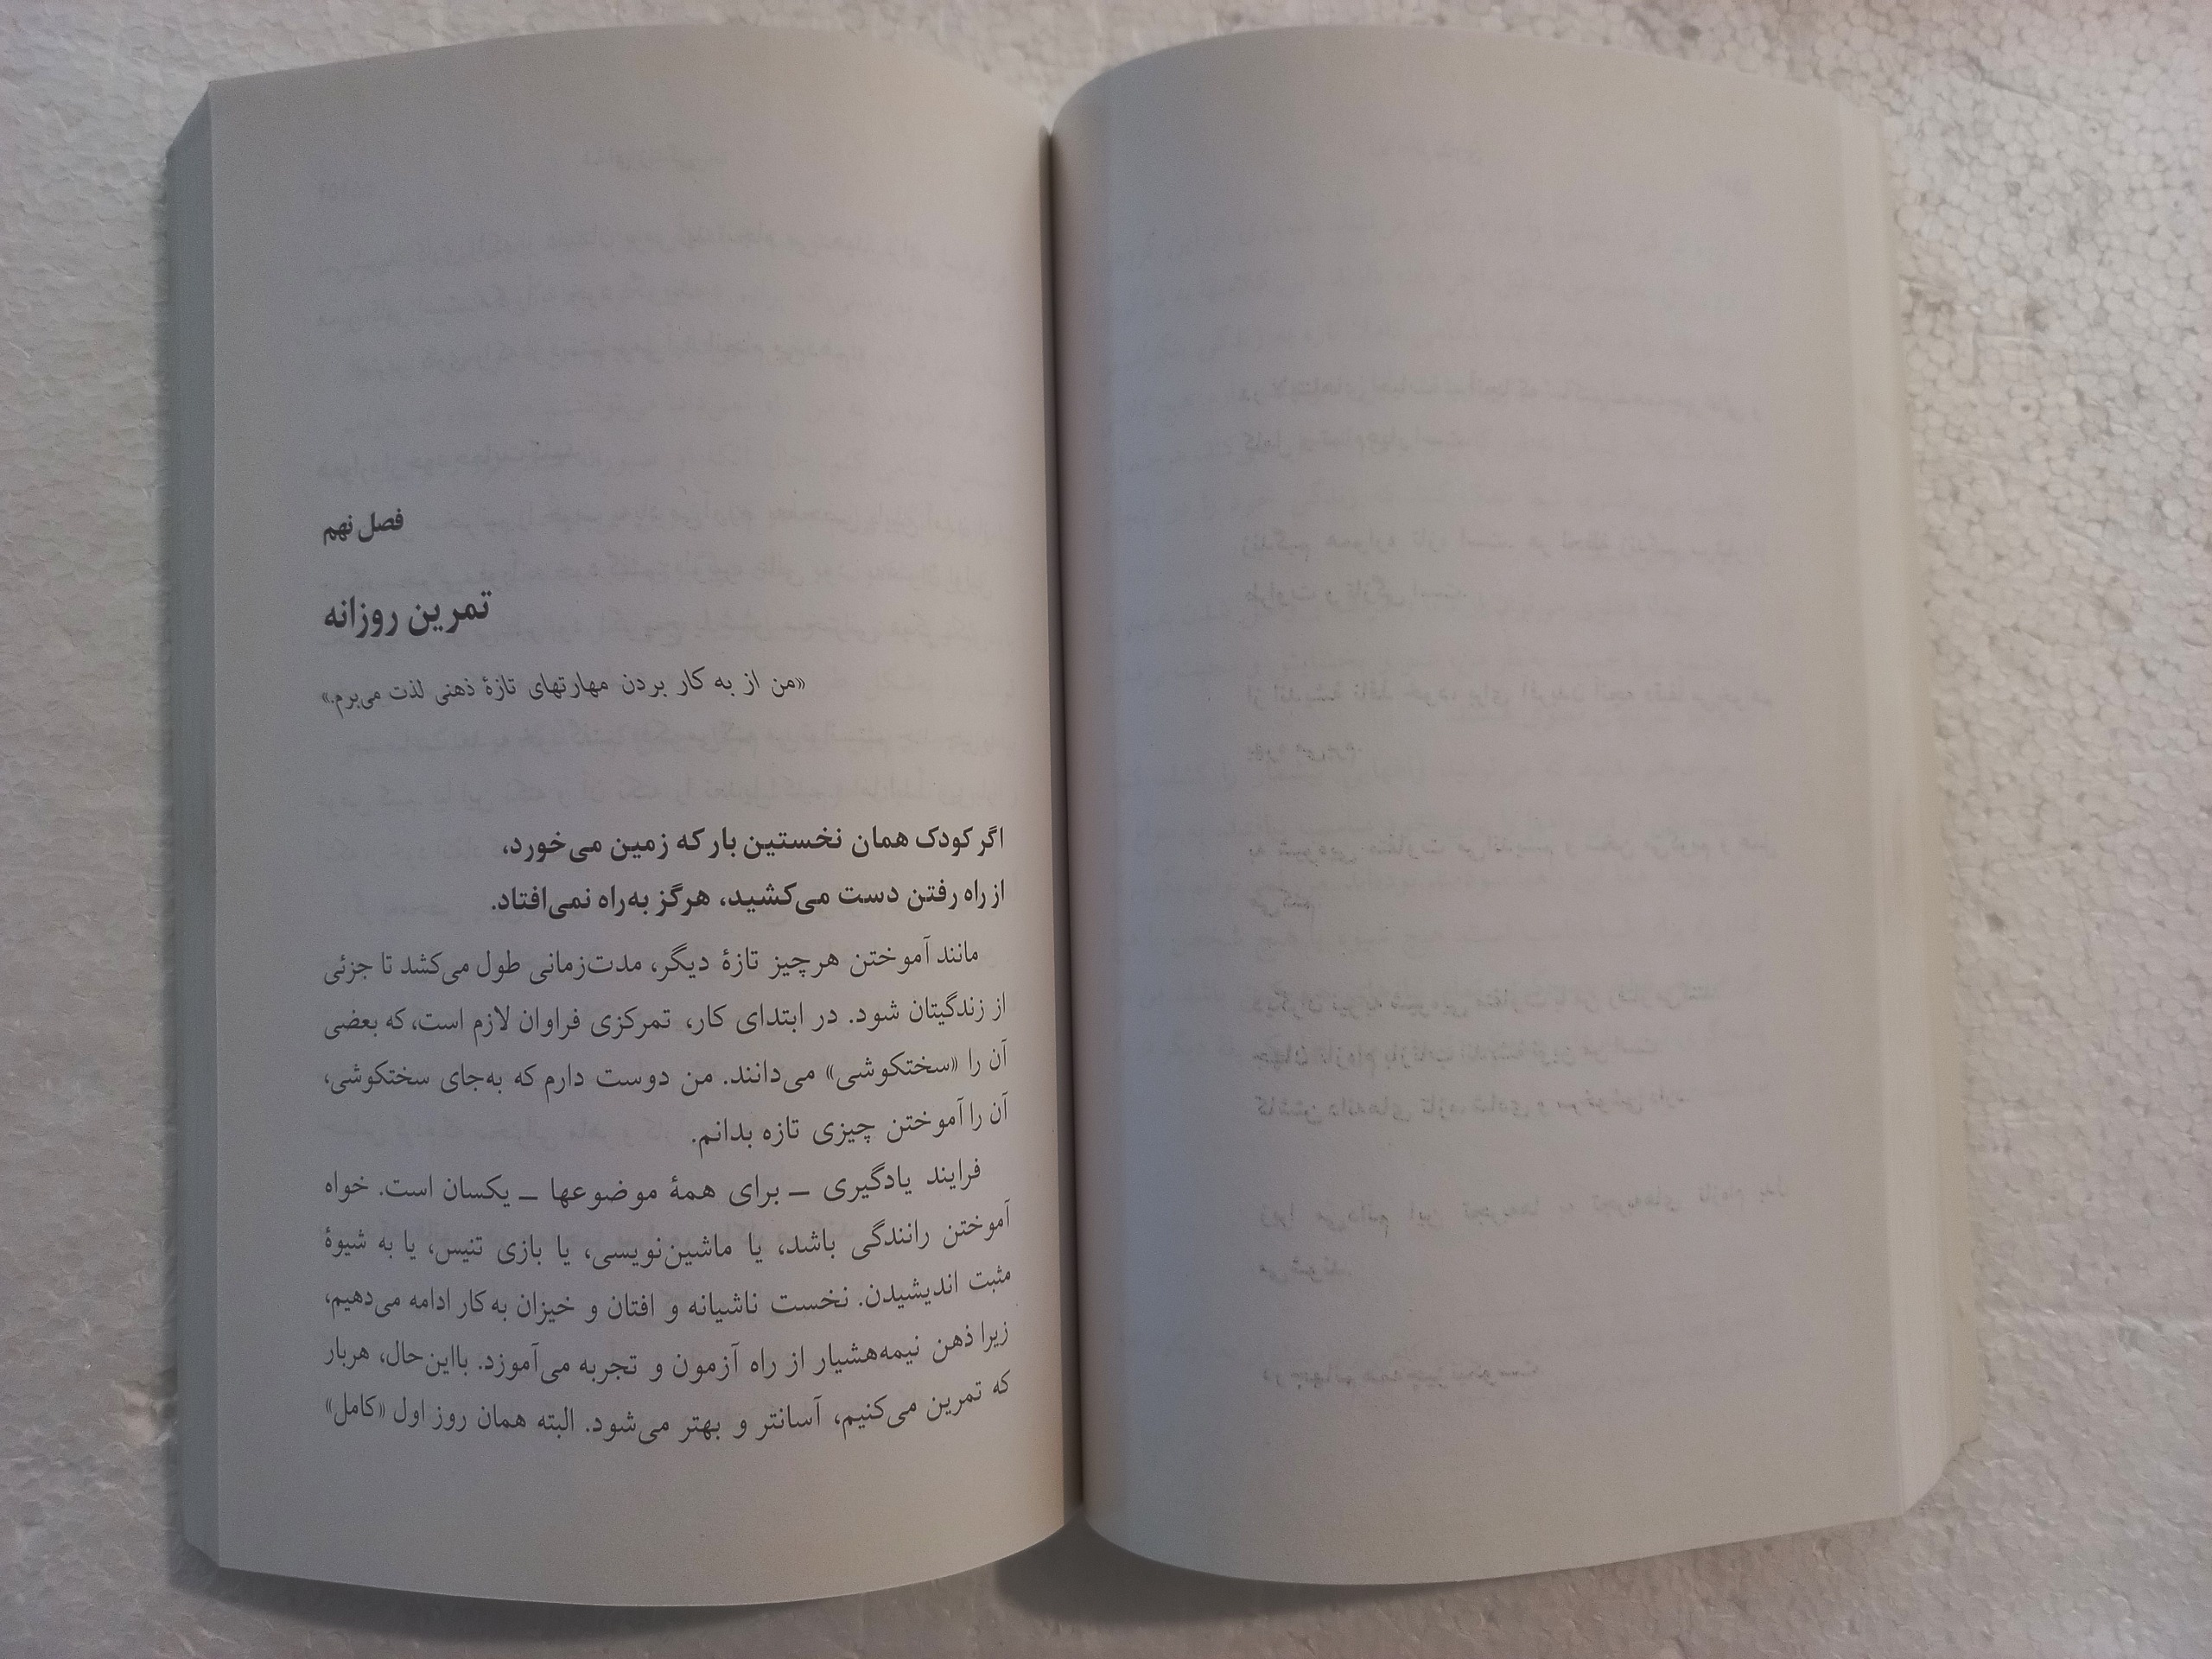 فصل نهم
تمرین روزانه
«من از به کار بردن مهارتهای تازهٔ ذهنی لذت می‌برم.»
اگر کودک همان نخستین بار که زمین می‌خورد،
از راه رفتن دست می‌کشید، هرگز به‌راه نمی‌افتاد.
مانند آموختن هرچیز تازهٔ دیگر، مدت‌زمانی طول می‌کشد تا جزئی
از زندگیتان شود. در ابتدای کار، تمرکزی فراوان لازم است، که بعضی
آن را «سختکوشی» می‌دانند. من دوست دارم که به‌جای سختکوشی،
آن را آموختن چیزی تازه بدانم.
فرایند یادگیری ـ برای همهٔ موضوعها ـ یکسان است. خواه
آموختن رانندگی باشد، یا ماشین‌نویسی، یا بازی تنیس، یا به شیوهٔ
مثبت اندیشیدن. نخست ناشیانه و افتان و خیزان به‌کار ادامه می‌دهیم،
زیرا ذهن نیمه‌هشیار از راه آزمون و تجربه می‌آموزد. بااین‌حال، هربار
که تمرین می‌کنیم، آسانتر و بهتر می‌شود. البته همان روز اول «کامل»